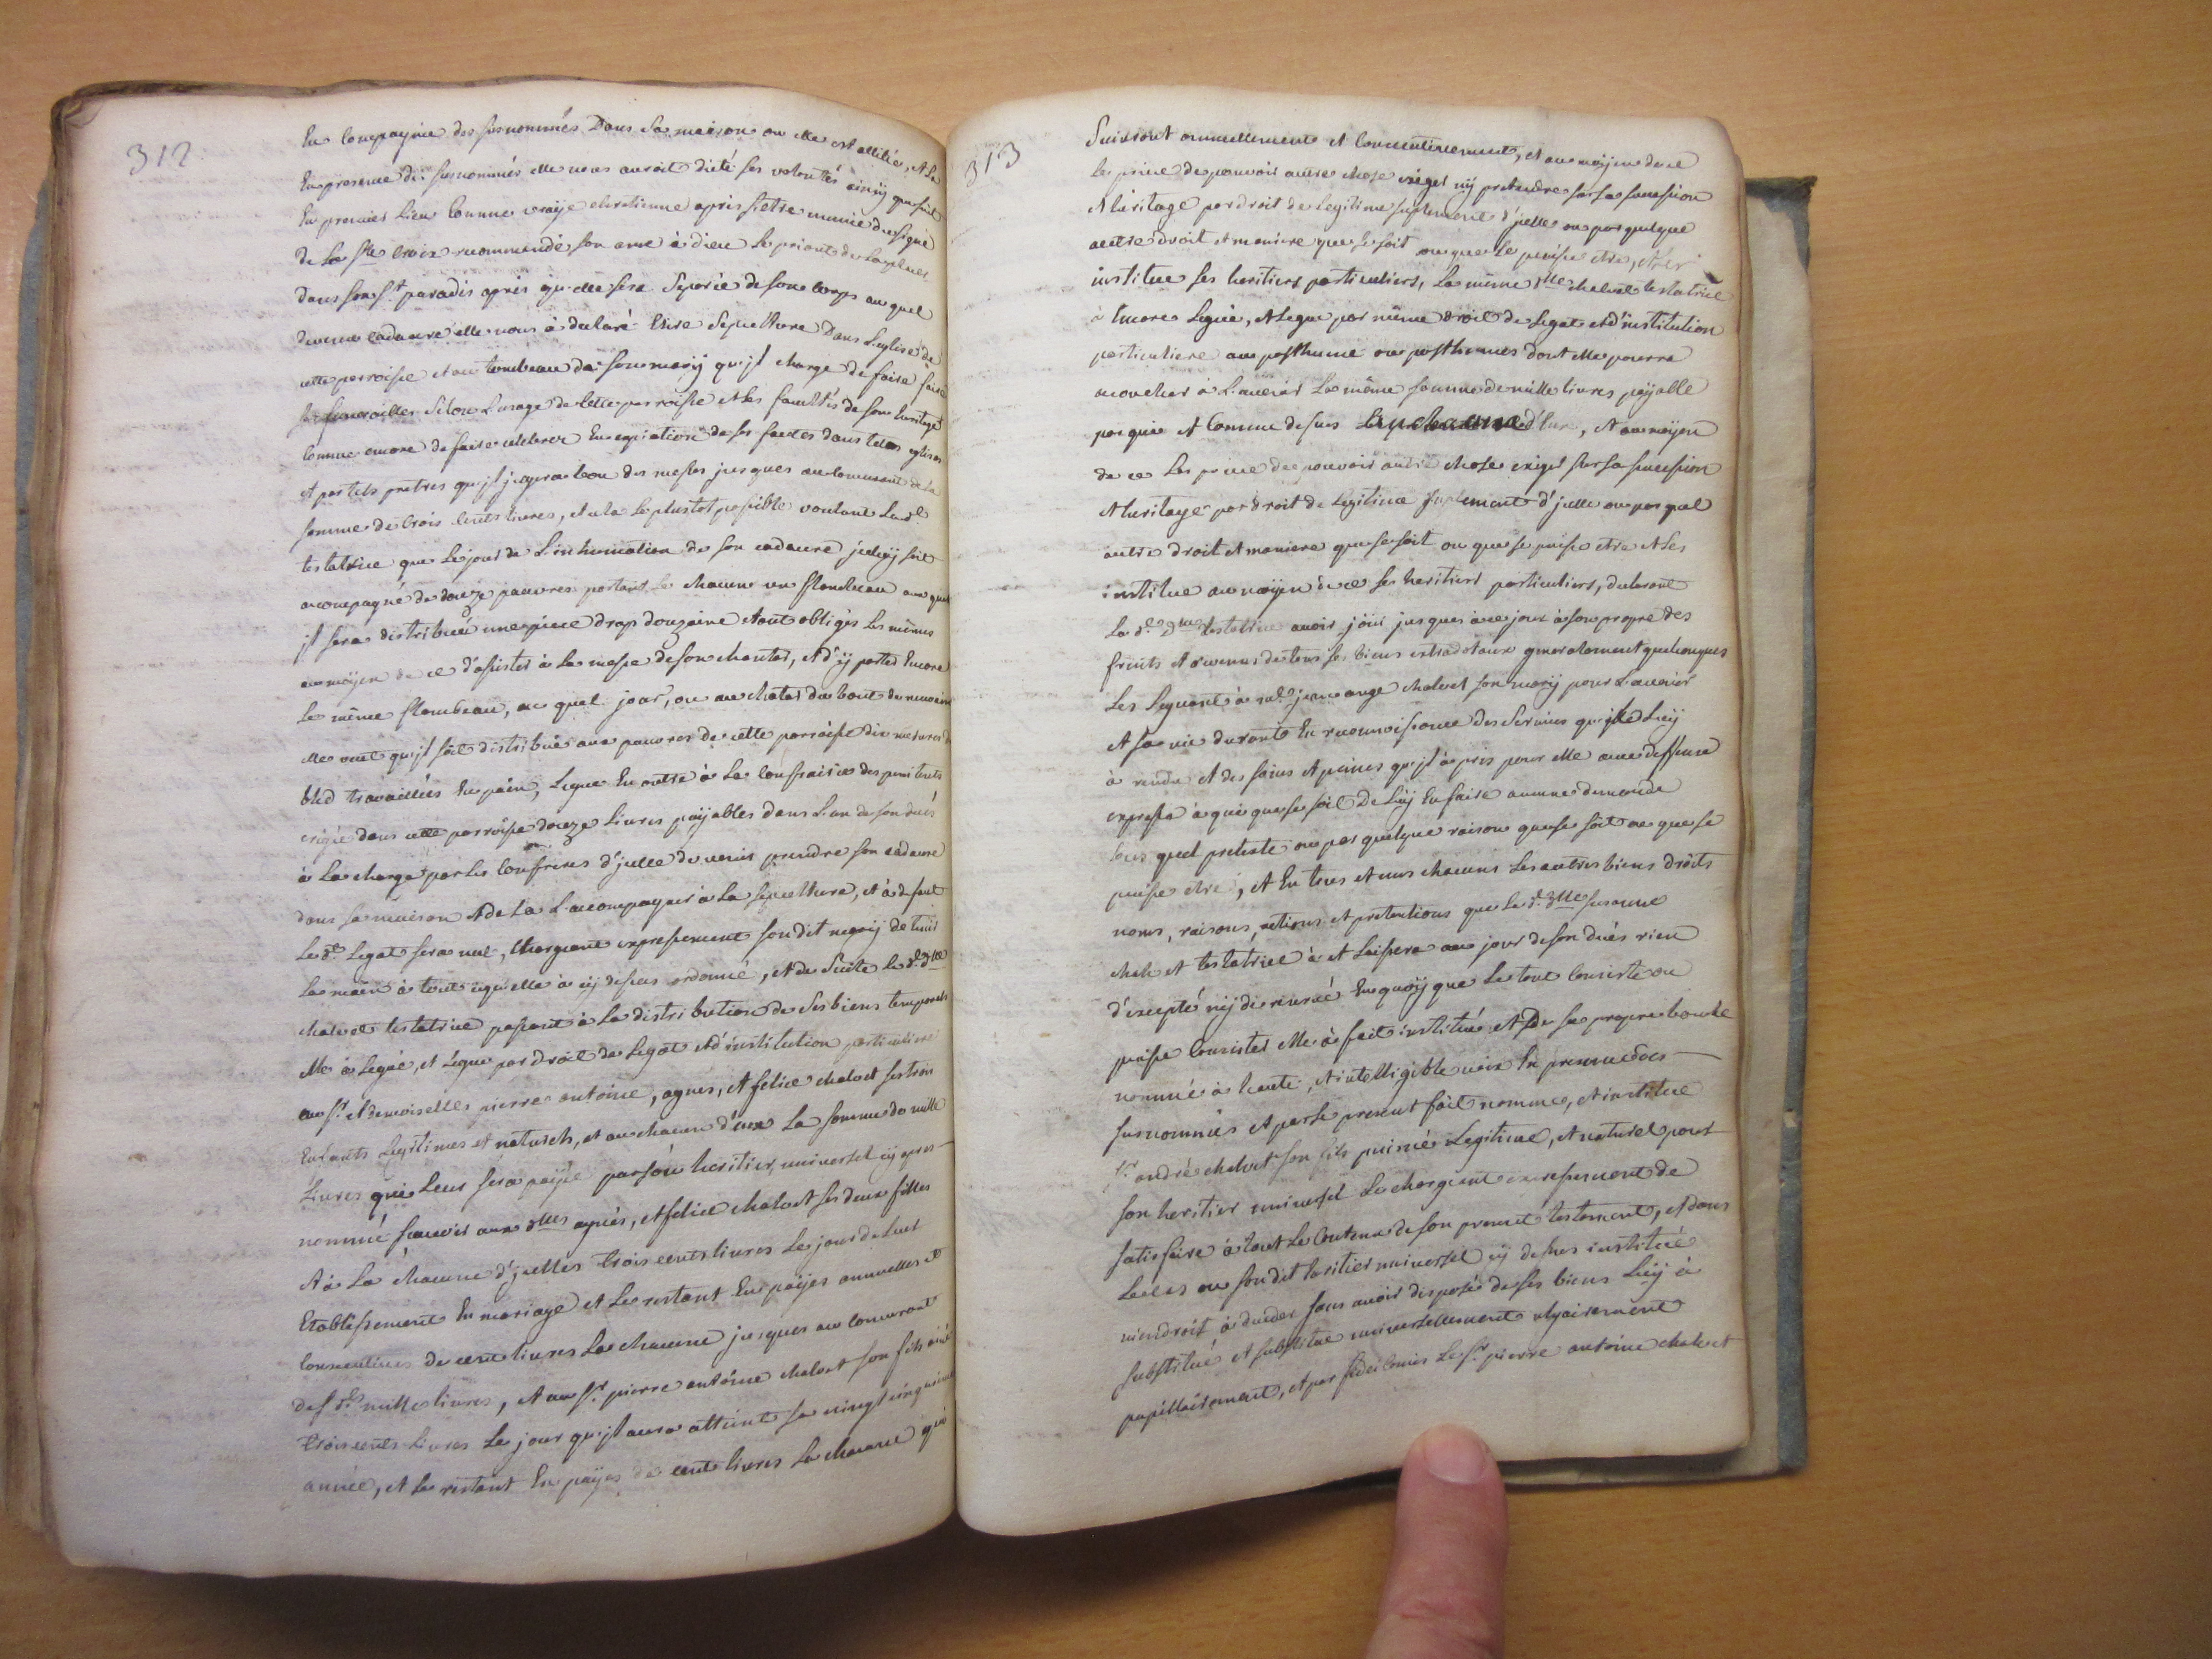 312
En Compagnie des susnommés Dans sa maison ou elle est allitée, et la
En presence des susnommés elle nous auroit dicté ses volontés ainsy que suit
En premier Lieu Comme vraÿe chretienne apres s'etre munie du signe
de La Ste Croix recommandé son ame à dieu Le priant de la placer
dans son St paradis apres qu'elle sera Separée de son Corps au quel
devenu Cadavre elle nous à declaré Elire Sepulture Dans L'eglise de
cette parroisse et au tombeau de son marÿ qu'jl charge de faire faire
ses funerailles Selon L'usage de Cette parroisse et les facultés de son heritage
Comme encore de faire celebrer En expiation de ses fautes dans telles eglises
et par tels pretres qu'jl jugera bon des messes jusques au concurrent de la
somme de trois Cents livres, et cela le plustot possible voulant La de
testatrice que Le jour de L'inhumation de son cadavre jceluÿ soit
accompagné de douze pauvres portant chacun un flambeau aux quels
jl sera distribué une piece drap douzaine etant obligés Les mêmes
au moÿen de ce d'assister à la messe de son chanter, et d'ÿ porter Encore
Le même flambeau, au quel jour, ou au chanter du bout de neuvaine
elle veut qu'jl soit distribué aux pauvres de cette parroisse dix mesures de
bled travaillées En pain, Legue En outre à La Confrairie des penitents
erigée dans cette parroisse douze Livres paÿables dans L'an de son decés
à La charge par Les Confreres d'jcelle de venir prendre son cadavre
dans sa maison et de La L'accompagner à La sepulture, et à defaut
Le dt Legat sera nul, Chargeant expressement son dit marÿ de tenir
La main à tout cequ'elle à cÿ dessus ordonné, et de Suite La de dlle
chalvet testatrice passant à La distribution de Ses biens temporels
elle à Legué, et Legue par droit de Legat et d'institution particuliere
aux Sr et demoiselles pierre antoine, agnes, et felice chalvet ses trois
Enfants Legitimes et naturels, et au chacun d'eux La somme de mille
Livres qui Leur sera paÿée par son heritier universel cÿ apres
nommé scavoir aux dlles agnés, et felice chalvet ses deux filles
et à La chacune d'jcelles trois cents livres Le jour de Leur
Etablissement En mariage et Le restant En paÿes annuelles et
Consecutives de cent livres La chacune jusques au concurrent
des des mille livres, et au Sr pierre antoine chalvet son fils ainé
trois cents Livres Le jour qu'jl aura atteint sa vingt cinquieme
année, et Le restant En paÿes de cent livres La chacune qui
313
Suivront annuellement et Consecutivement, et au moÿen de ce
Les prive de pouvoir autre chose exiger nÿ pretendre sur sa succession
et heritage par droit de Legitime suplement d'jcelle ou par quelque
autre droit et maniere que se soit ou que se puisse etre, et Les
institue ses heritiers particuliers, La même dlle chalvet testatrice
à Encore Legué, et Legue par même droit de Legat et d'institution
particuliere au posthume ou posthumes dont elle pourra
accoucher à L'avenir La même somme de mille livres paÿable
par quie et Comme dessus d'Eux, et au moÿen
de ce Les prive de pouvoir autre chose exiger sur sa succession
et heritage par droit de Legitime suplement d'jcelle ou par quel
autre droit et maniere que se soit ou que se puisse etre et Les
institue au moÿen de ce ses heritiers particuliers, declarant
La de dlle testatrice avoir joüi jusques à ce jour à son propre des
fruits et revenus de tous ses biens extradotaux generalement quelconques
Les Leguant à jean ange chalvet son marÿ pour L'avenir
et sa vie durant En reconnoissance des Services qu'jl Luÿ
à rendu et des soins et peines qu'jl à pris pour elle avec deffense
expresse à qui que se soit De Luÿ En faire aucune demande
sous quel pretexte ou par quelque raison que se soit ou que se
puisse etre, et En tous et uns chacuns Les autres biens droits
noms, raisons, actions et pretentions que La de dlle susanne
chalvet testatrice à et Laissera au jour de son decés rien
d'excepté nÿ de reservé En quoÿ que Le tout Consiste ou
puisse Consister elle à fait institué et De sa propre bouche
nommé à haute, et intelligible voix En presence des
susnommés et par Le present fait nomme, et institue
Sr andré chalvet son fils puiné Legitime, et naturel pour
son heritier universel Le chargeant expressement de
satisfaire à tout Le Contenu de son present testament, et dans
Le cas ou son dit heritier universel cÿ dessus institué
viendroit à deceder sans avoir disposé de ses biens Luÿ à
substitué et substitue universellement vulgairement
pupillairement, et par fidei Comis Le Sr pierre antoine chalvet